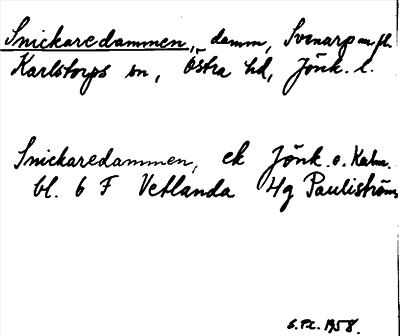 Snickaredammen, damm, Svenarp
Karlstorps sn, Östra hd, Jönk. l.
Snickaredammen, ek Jönk. o. Kalm.
bl. 6 F Vetlanda 4g Pauliström
1958.